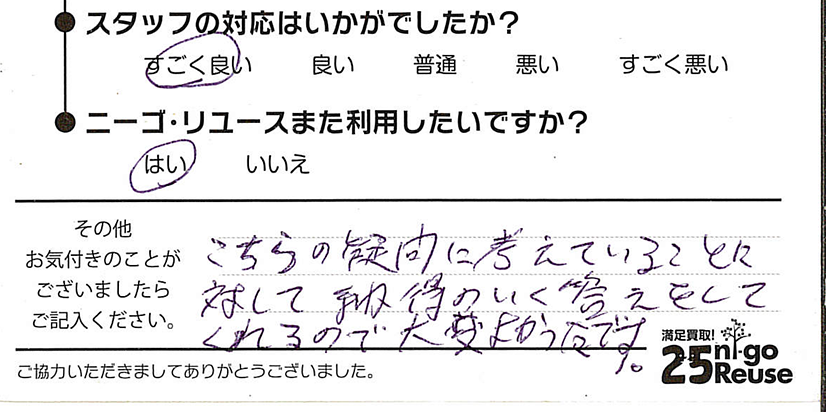 スタッフの対応はいかがでしたか?
すごく良い 良い 普通 悪い すごく悪い
ニーゴ・リユースまた利用したいですか?
はい いいえ
その他
お気付きのことが
ございましたら
ご記入ください。
こちらの疑問に考えていることに
対して納得のいく答えをして
くれるので大変よかったです。
満足買取!
25 ni-go
Reuse
ご協力いただきましてありがとうございました。